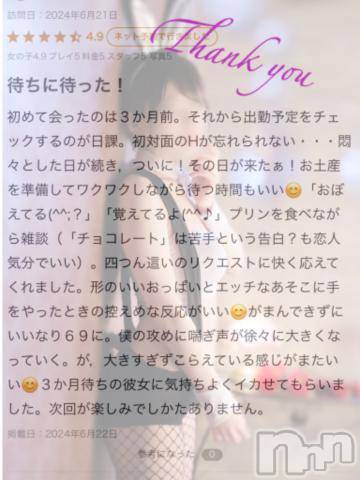 訪問日：2024年6月21日
4.9 ネット予約で行きました
Thank you
女の子4.9 プレイ5 料金5 スタッフ5 写真5
待ちに待った！
初めて会ったのは３か月前。それから出勤予定をチェ
ックするのが日課。初対面のHが忘れられない・・・悶
々とした日が続き，ついに！その日が来たぁ！お土産
を準備してワクワクしながら待つ時間もいい😊「おぼ
えてる(^^;？」「覚えてるよ(^^♪」プリンを食べなが
ら雑談（「チョコレート」は苦手という告白？も恋人
気分でいい）。四つん這いのリクエストに快く応えて
くれました。形のいいおっぱいとエッチなあそこに手
をやったときの控えめな反応がいい😊がまんできずに
いいなり６９に。僕の攻めに喘ぎ声が徐々に大きくな
っていく。が，大きすぎずこらえている感じがまたい
い😊３か月待ちの彼女に気持ちよくイカせてもらいま
した。次回が楽しみでしかたありません。
掲載日：2024年6月22日
参考になった 0